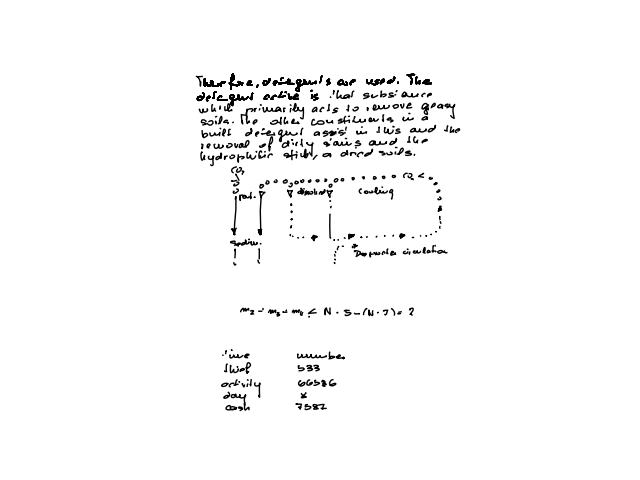 Therefore, detergents are used. The
detergent active is that substance
which primarily acts to remove greasy
soils. The other constituents in a
built detergent assist in this and the
removal of dirty stains and the
hydrophilic sticky, a dred soils.
CO₂
part. dissolved cooling CO₂ <
sedim.
Deepwater circulation
time number
533
activity 66586
day x
cash 7582